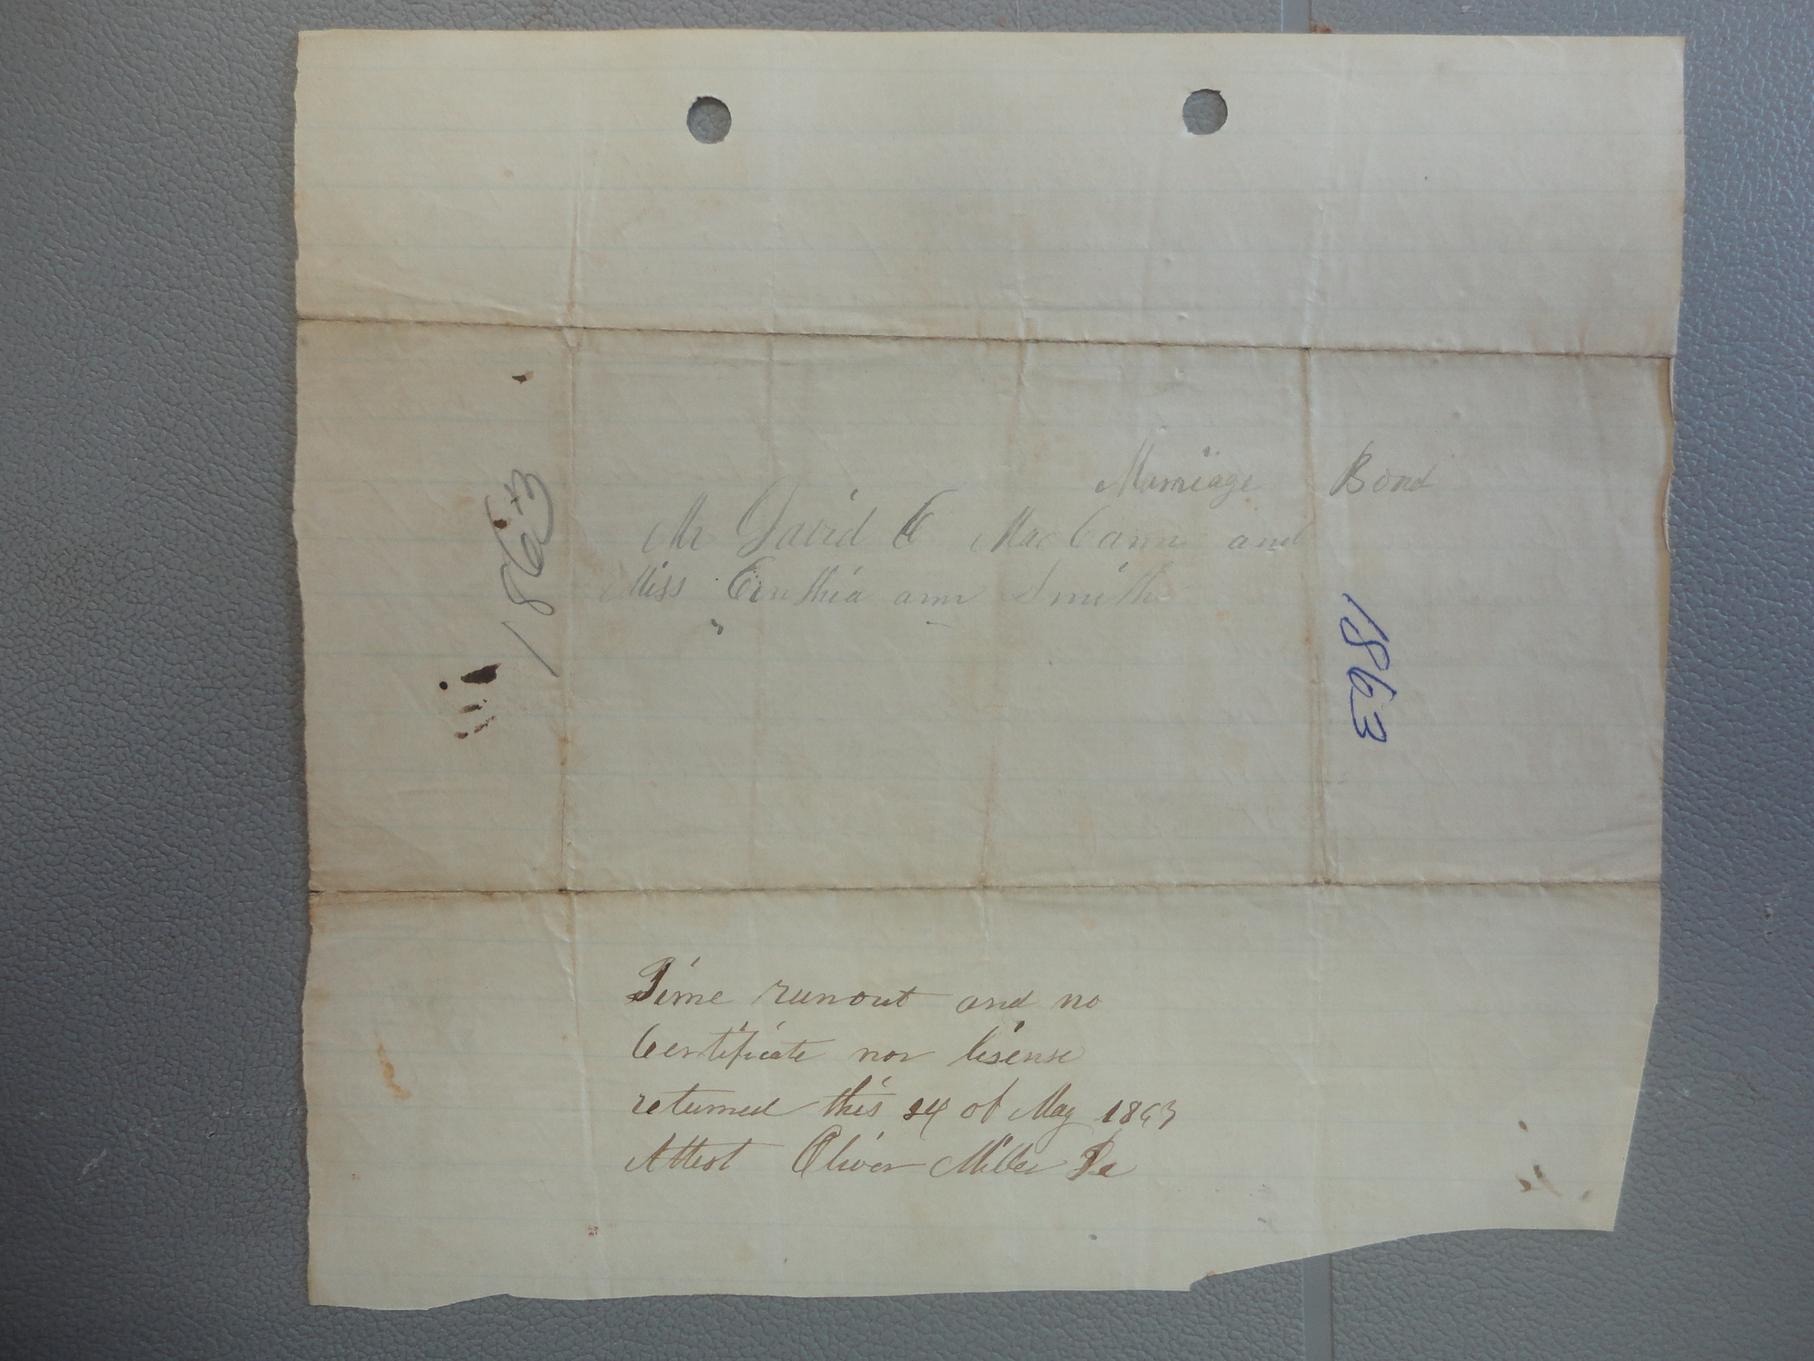 1863
Marriage Bond
Mr David C MacCann and
Miss Cinthia ann Smith
1863
Time runout and no
Certificate nor lisense
returned this 24 of May 1863
Attest Oliver Miller